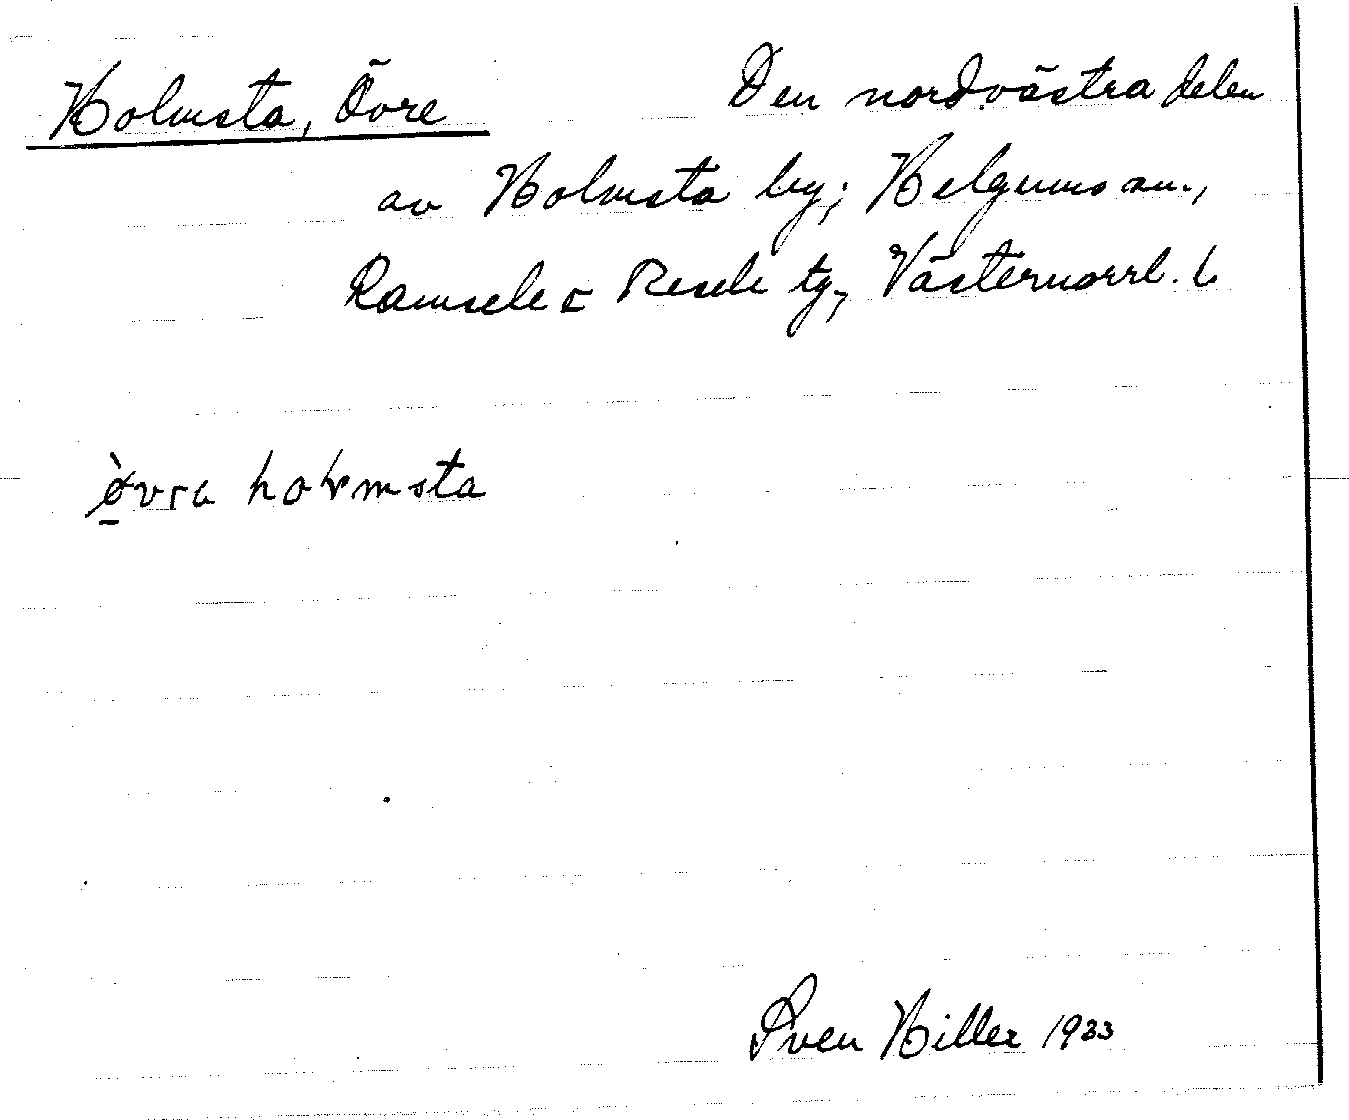 Holmsta, Övre
Den nordvästra delen
av Holmsta by; Helgums sn.,
Ramsele o Resele tg, Västernorrl. l
holmsta
Sven Hiller 1933